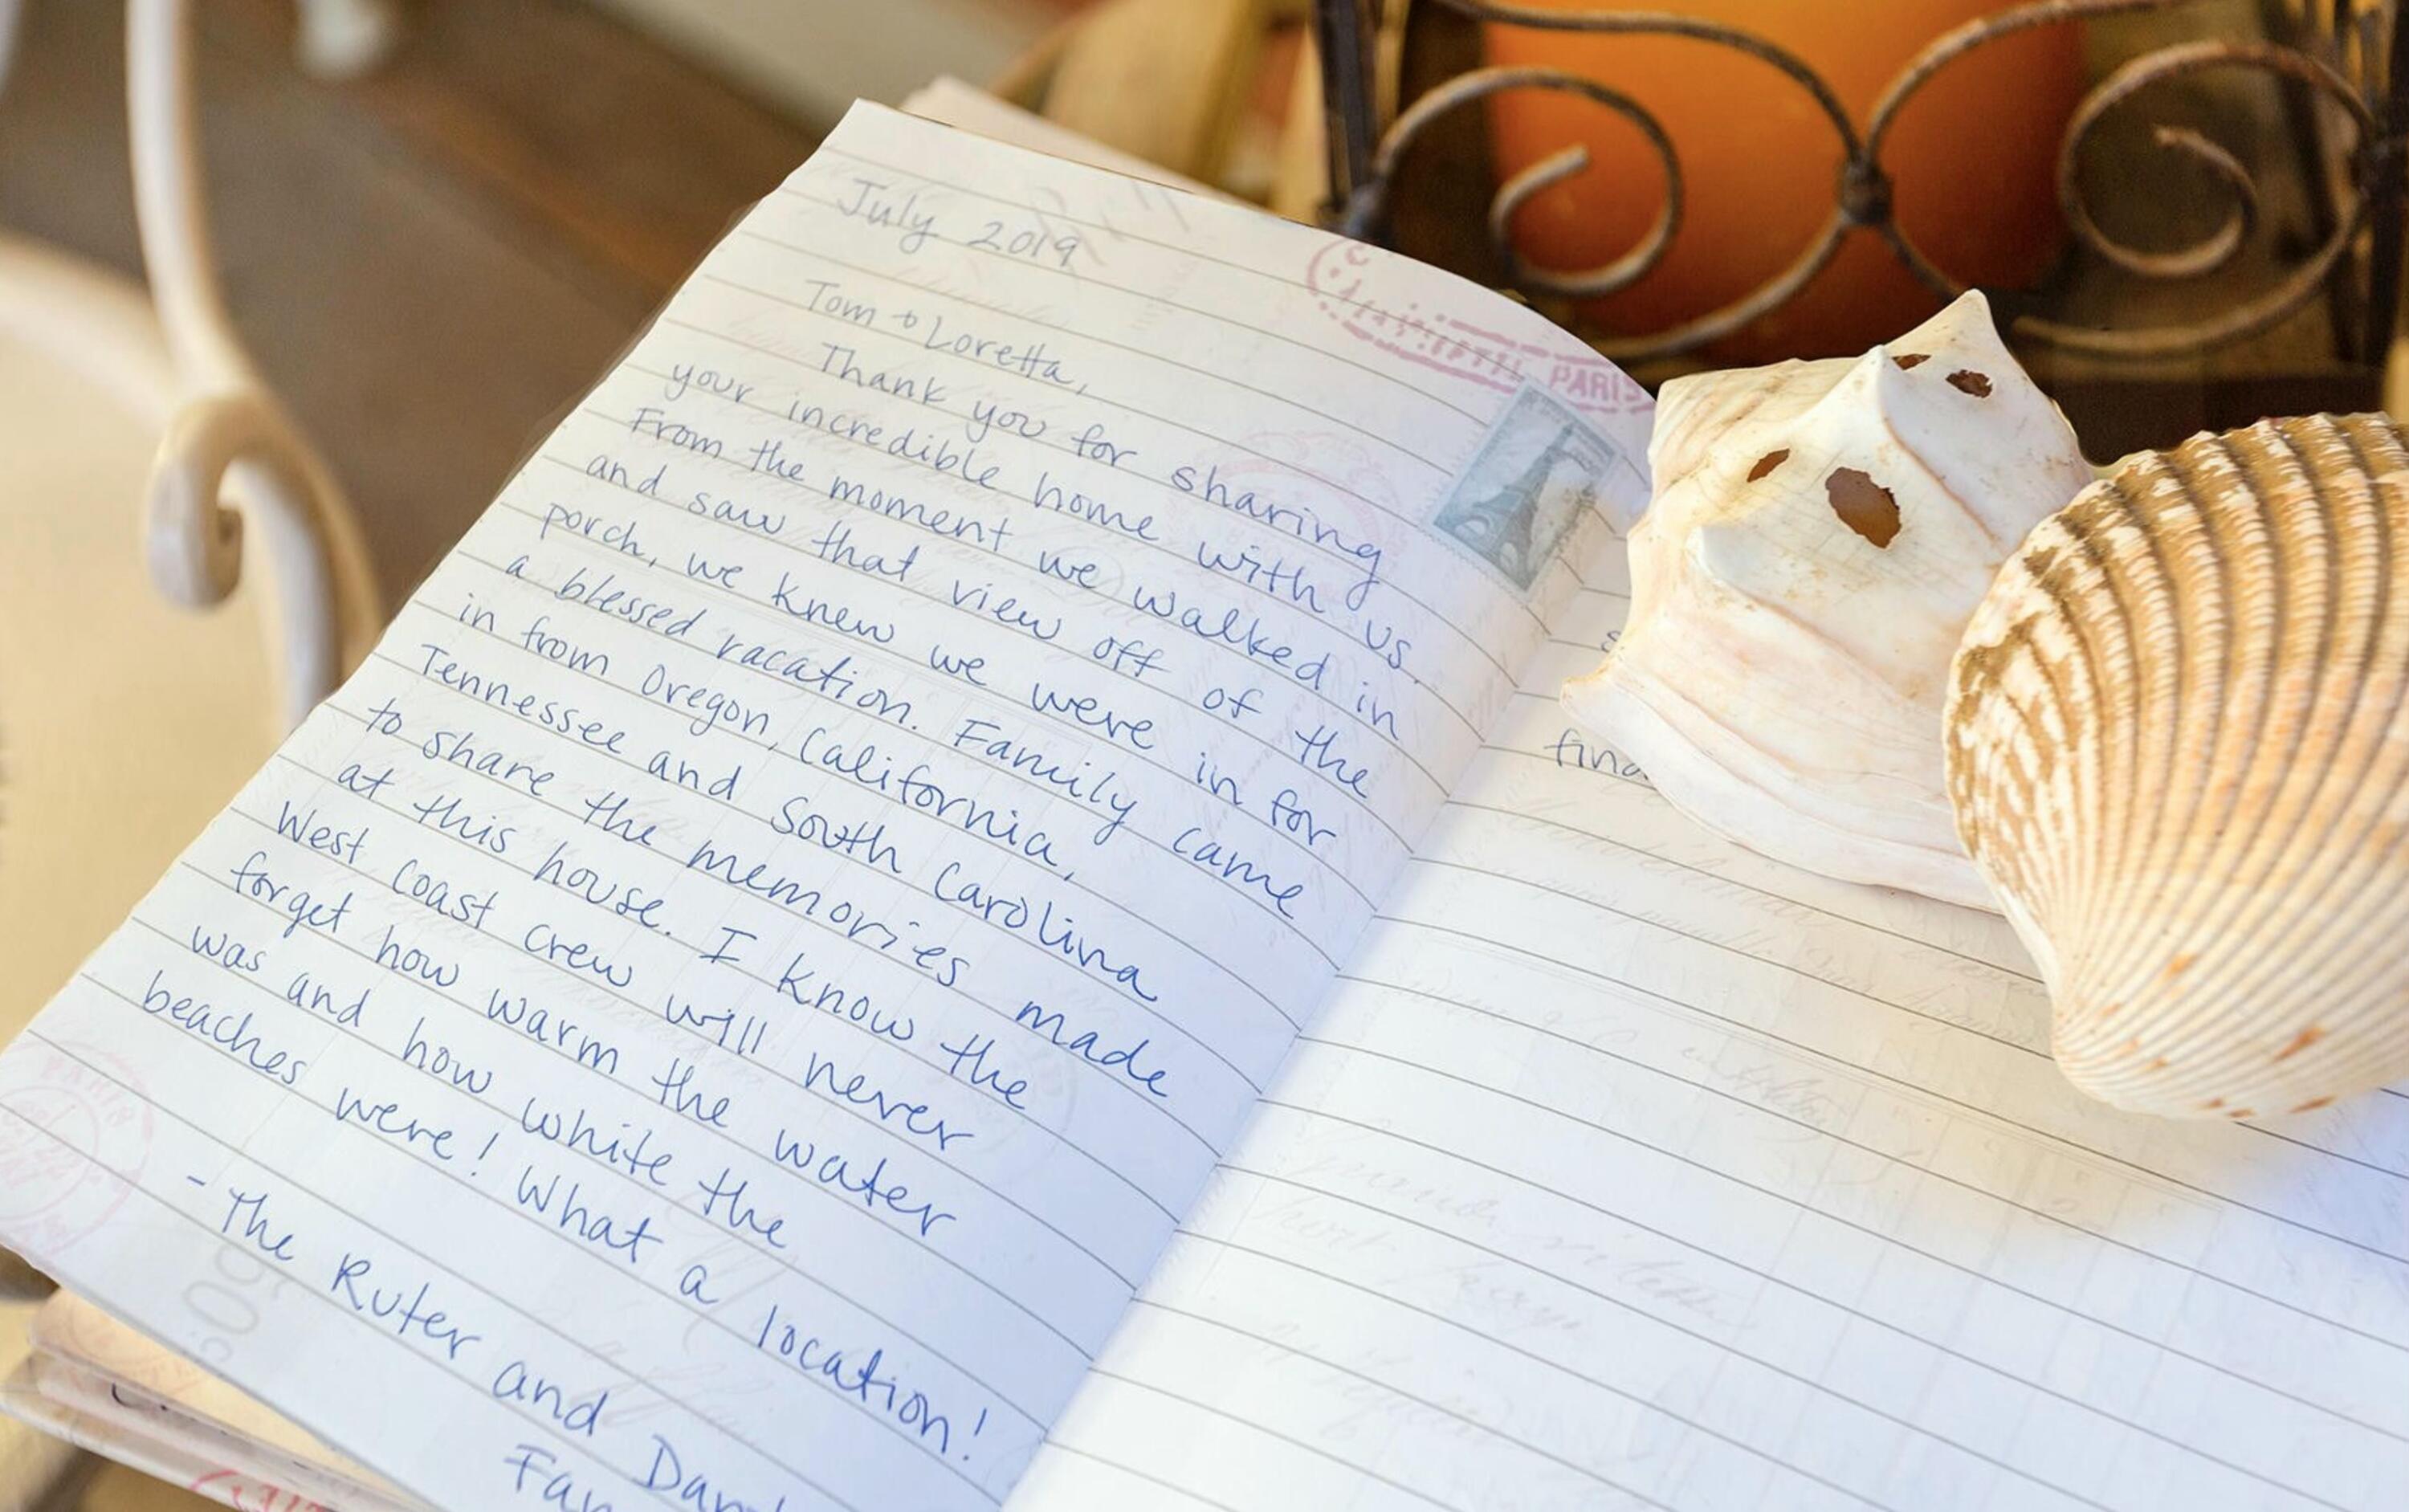 July 2019
Tom & Loretta,
Thank you for sharing
your incredible home with us.
From the moment we walked in
and saw that view off of the
porch, we knew we were in for
a blessed vacation. Family came
in from Oregon, California,
Tennessee and South Carolina
to share the memories made
at this house. I know the
West coast crew will never
forget how warm the water
was and how white the
beaches were! What a location!
- The Ruter and
PARIS
PARIS